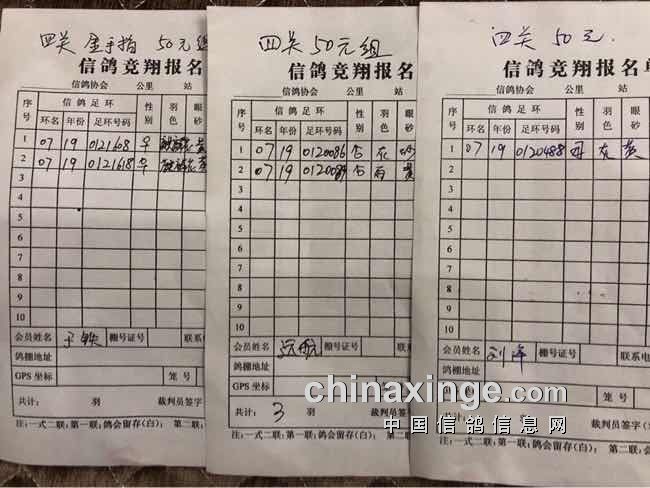 四关 金手指 50元组
信鸽竞翔报名
信鸽协会 公里 站
序号 信鸽足环 性别 羽色 眼砂
环名 年份 足环号码
1 07 19 0121608 黄
2 07 19 0121618
3
4
5
6
7
8
9
10
会员姓名 棚号证号
鸽棚地址
GPS 坐标
共计: 羽 裁判员签字
注:一式二联:第一联:鸽会留存(白);第二联
四关 50元组
信鸽竞翔报名
信鸽协会 公里 站
序号 信鸽足环 性别 羽色 眼砂
环名 年份 足环号码
1 07 19 0120086 灰
2 07 19 黄
3
4
5
6
7
8
9
10
会员姓名 远航 棚号证号 联系
鸽棚地址
GPS 坐标 笼号
共计: 3 羽 裁判员签字
注:一式二联:第一联:鸽会留存(白);第二联
四关 50元
信鸽竞翔报名单
信鸽协会 公里 站
序号 信鸽足环 性别 羽色 眼砂
环名 年份 足环号码
1 07 19 0120488 灰 黄
2
3
4
5
6
7
8
9
10
会员姓名 棚号证号 联系电
鸽棚地址
笼号
裁判员签字
注:一式二联:第一联:鸽会留存(白);第二联:
chinaxinge.com
中国信鸽信息网